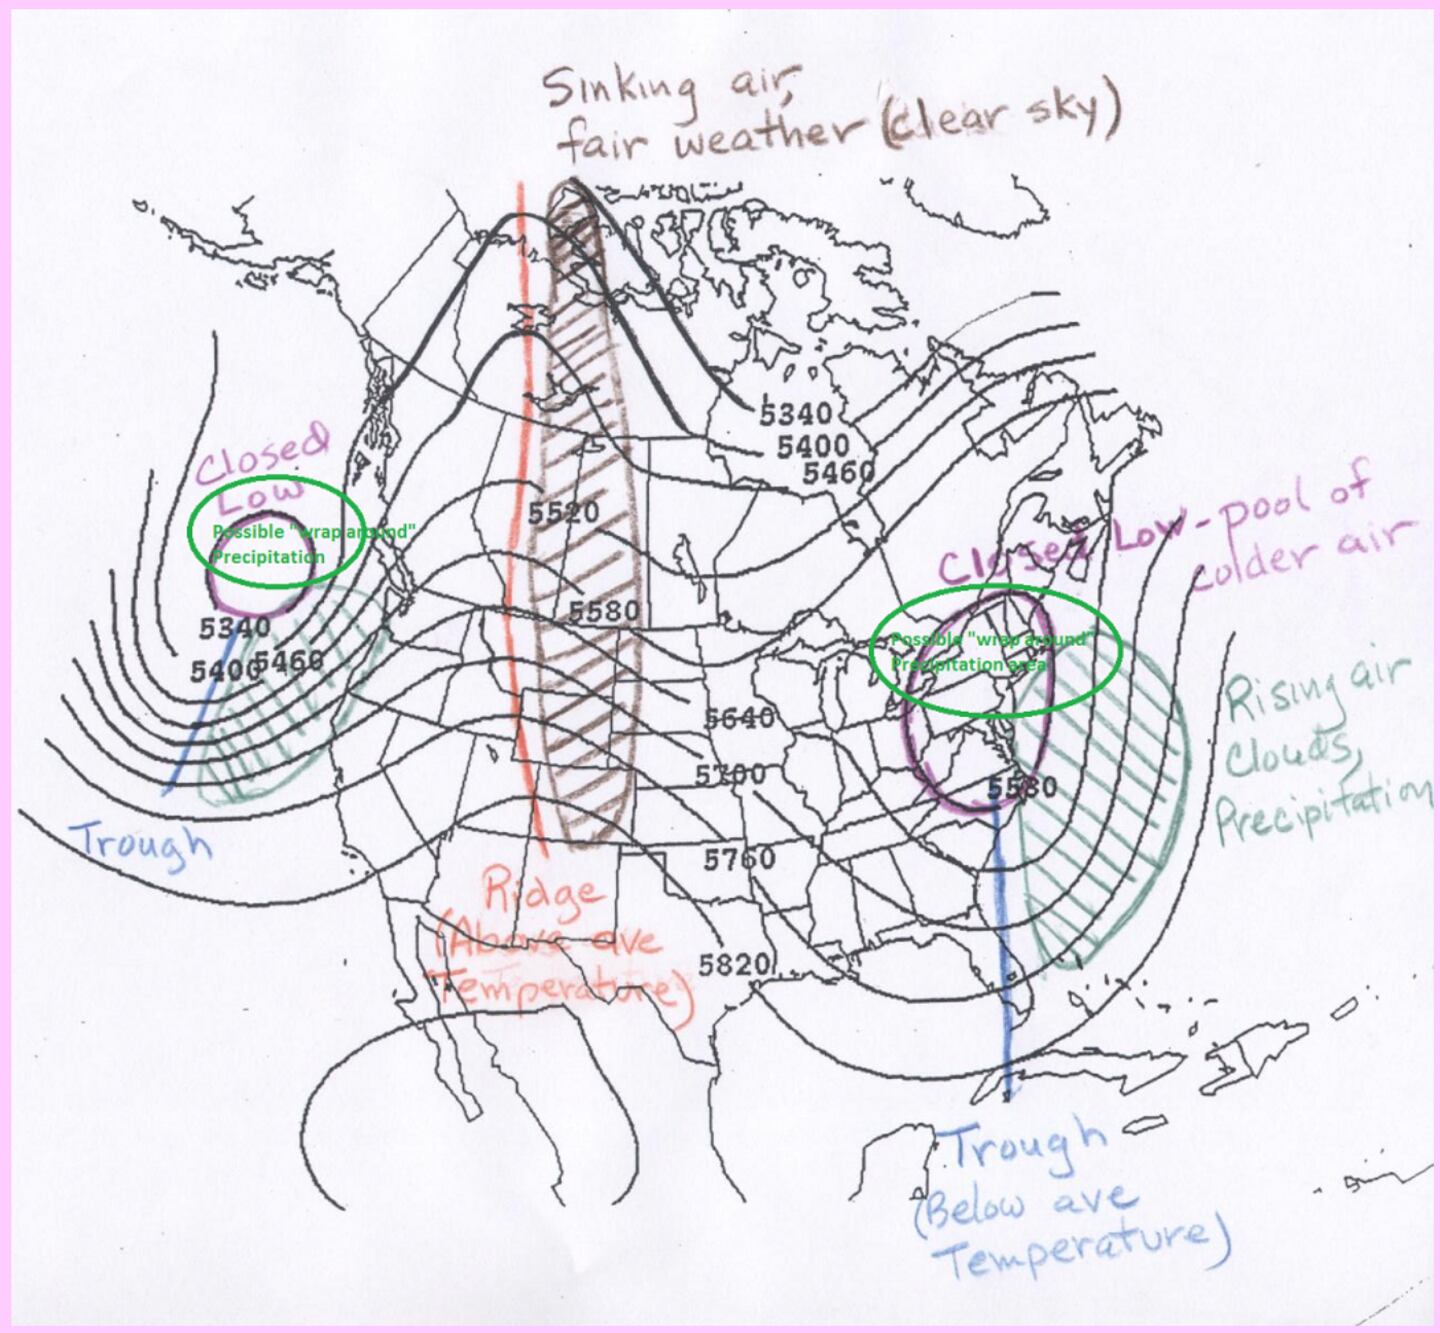 Sinking air,
fair weather (clear sky)
5340
5400
5460
Closed
Low
Possible "wrap around"
Precipitation
5520
Closed Low-pool of
colder air
5580
5340
5400
5460
Possible "wrap around"
Precipitation area
Rising air
Clouds,
Precipitation
5640
5700
5580
Trough
5760
Ridge
(Above ave
Temperature)
5820
Trough
(Below ave
Temperature)